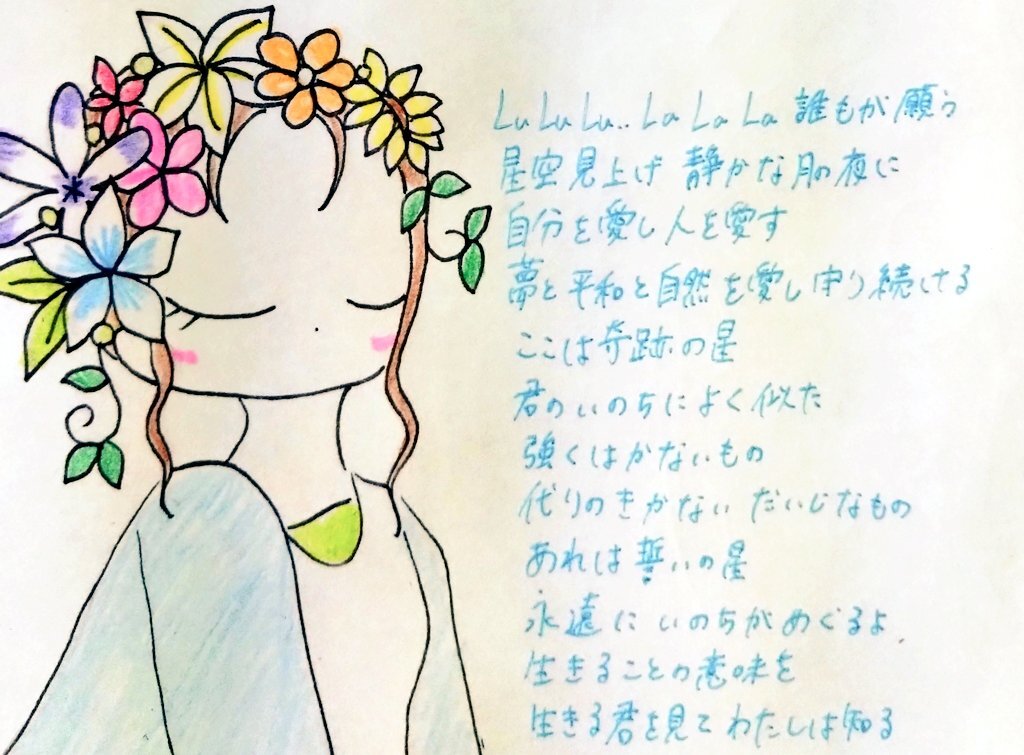 Lu Lu Lu.. La La La 誰もが願う
星空見上げ 静かな月の夜に
自分を愛し人を愛す
夢と平和と自然を愛し守り続ける
ここは奇跡の星
君のいのちによく似た
強くはかないもの
代りのきかない だいじなもの
あれは誓いの星
永遠に いのちがめぐるよ
生きることの意味を
生きる君を見て わたしは知る